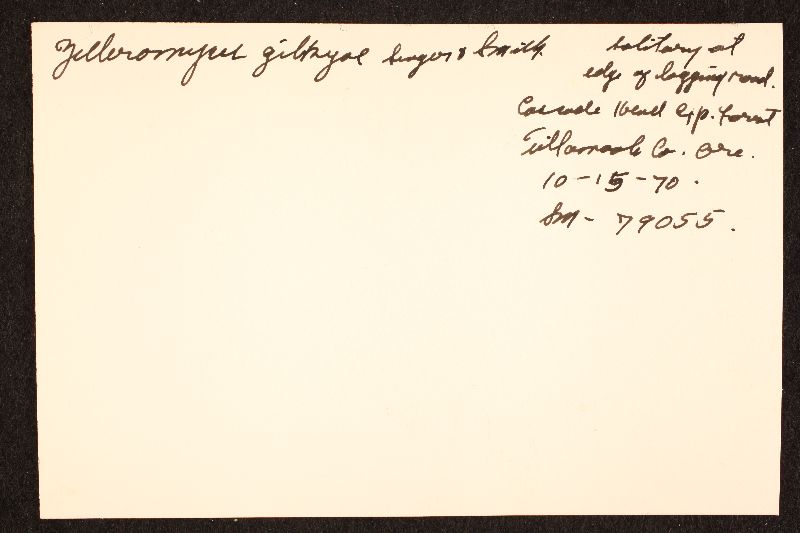 Zelleromyces gilkyae Singer & Smith
solitary at
edge of logging road.
Cascade Head Exp. Forest
Tillamook Co. Ore.
10-15-70.
SM- 79055.